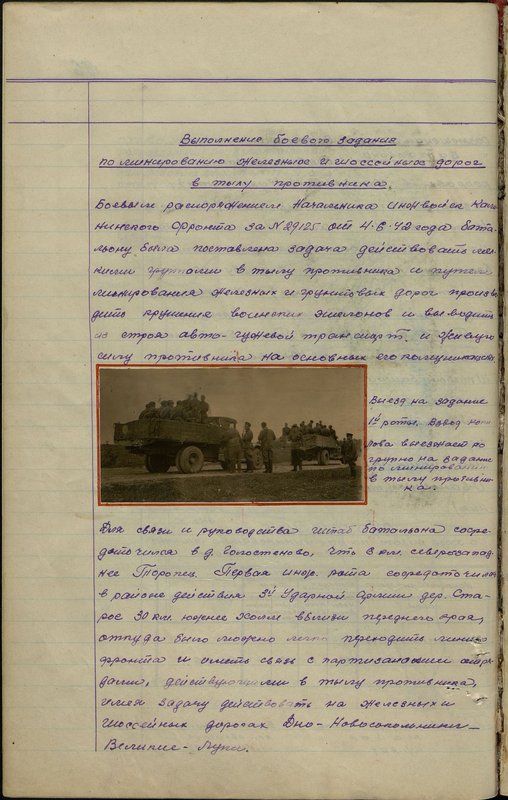 Выполнение боевого задания
по минированию железных и шоссейных дорог
в тылу противника.
Боевым распоряжением Начальника инж войск Кали
нинского Фронта за № 29125 от 4.6.42 года бата-
льону была поставлена задача действовать мел
кими группами в тылу противника и путем
минирования железных и грунтовых дорог произво
дить крушение воинских эшелонов и выводить
из строя авто-гужевой транспорт и живую
силу противника на основных его коммуникациях
Выезд на задание
1й роты. Взвод
выезжает по
грузно на задание
по минированию
в тылу противни
ка.
Для связи и руководства штаб батальона сосре
доточился в д. Голостеново, что 8 км. северозапад-
нее Торопец. Первая инж. рота сосредоточилась
в районе действия 3й Ударной Армии дер. Ста-
рое 30 км. южнее Холм вблизи переднего края,
откуда было можно легко переходить линию
фронта и иметь связь с партизанскими отря
дами, действующими в тылу противника,
имея задачу действовать на железных и
шоссейных дорогах Дно-Новосокольники-
Великие-Луки.